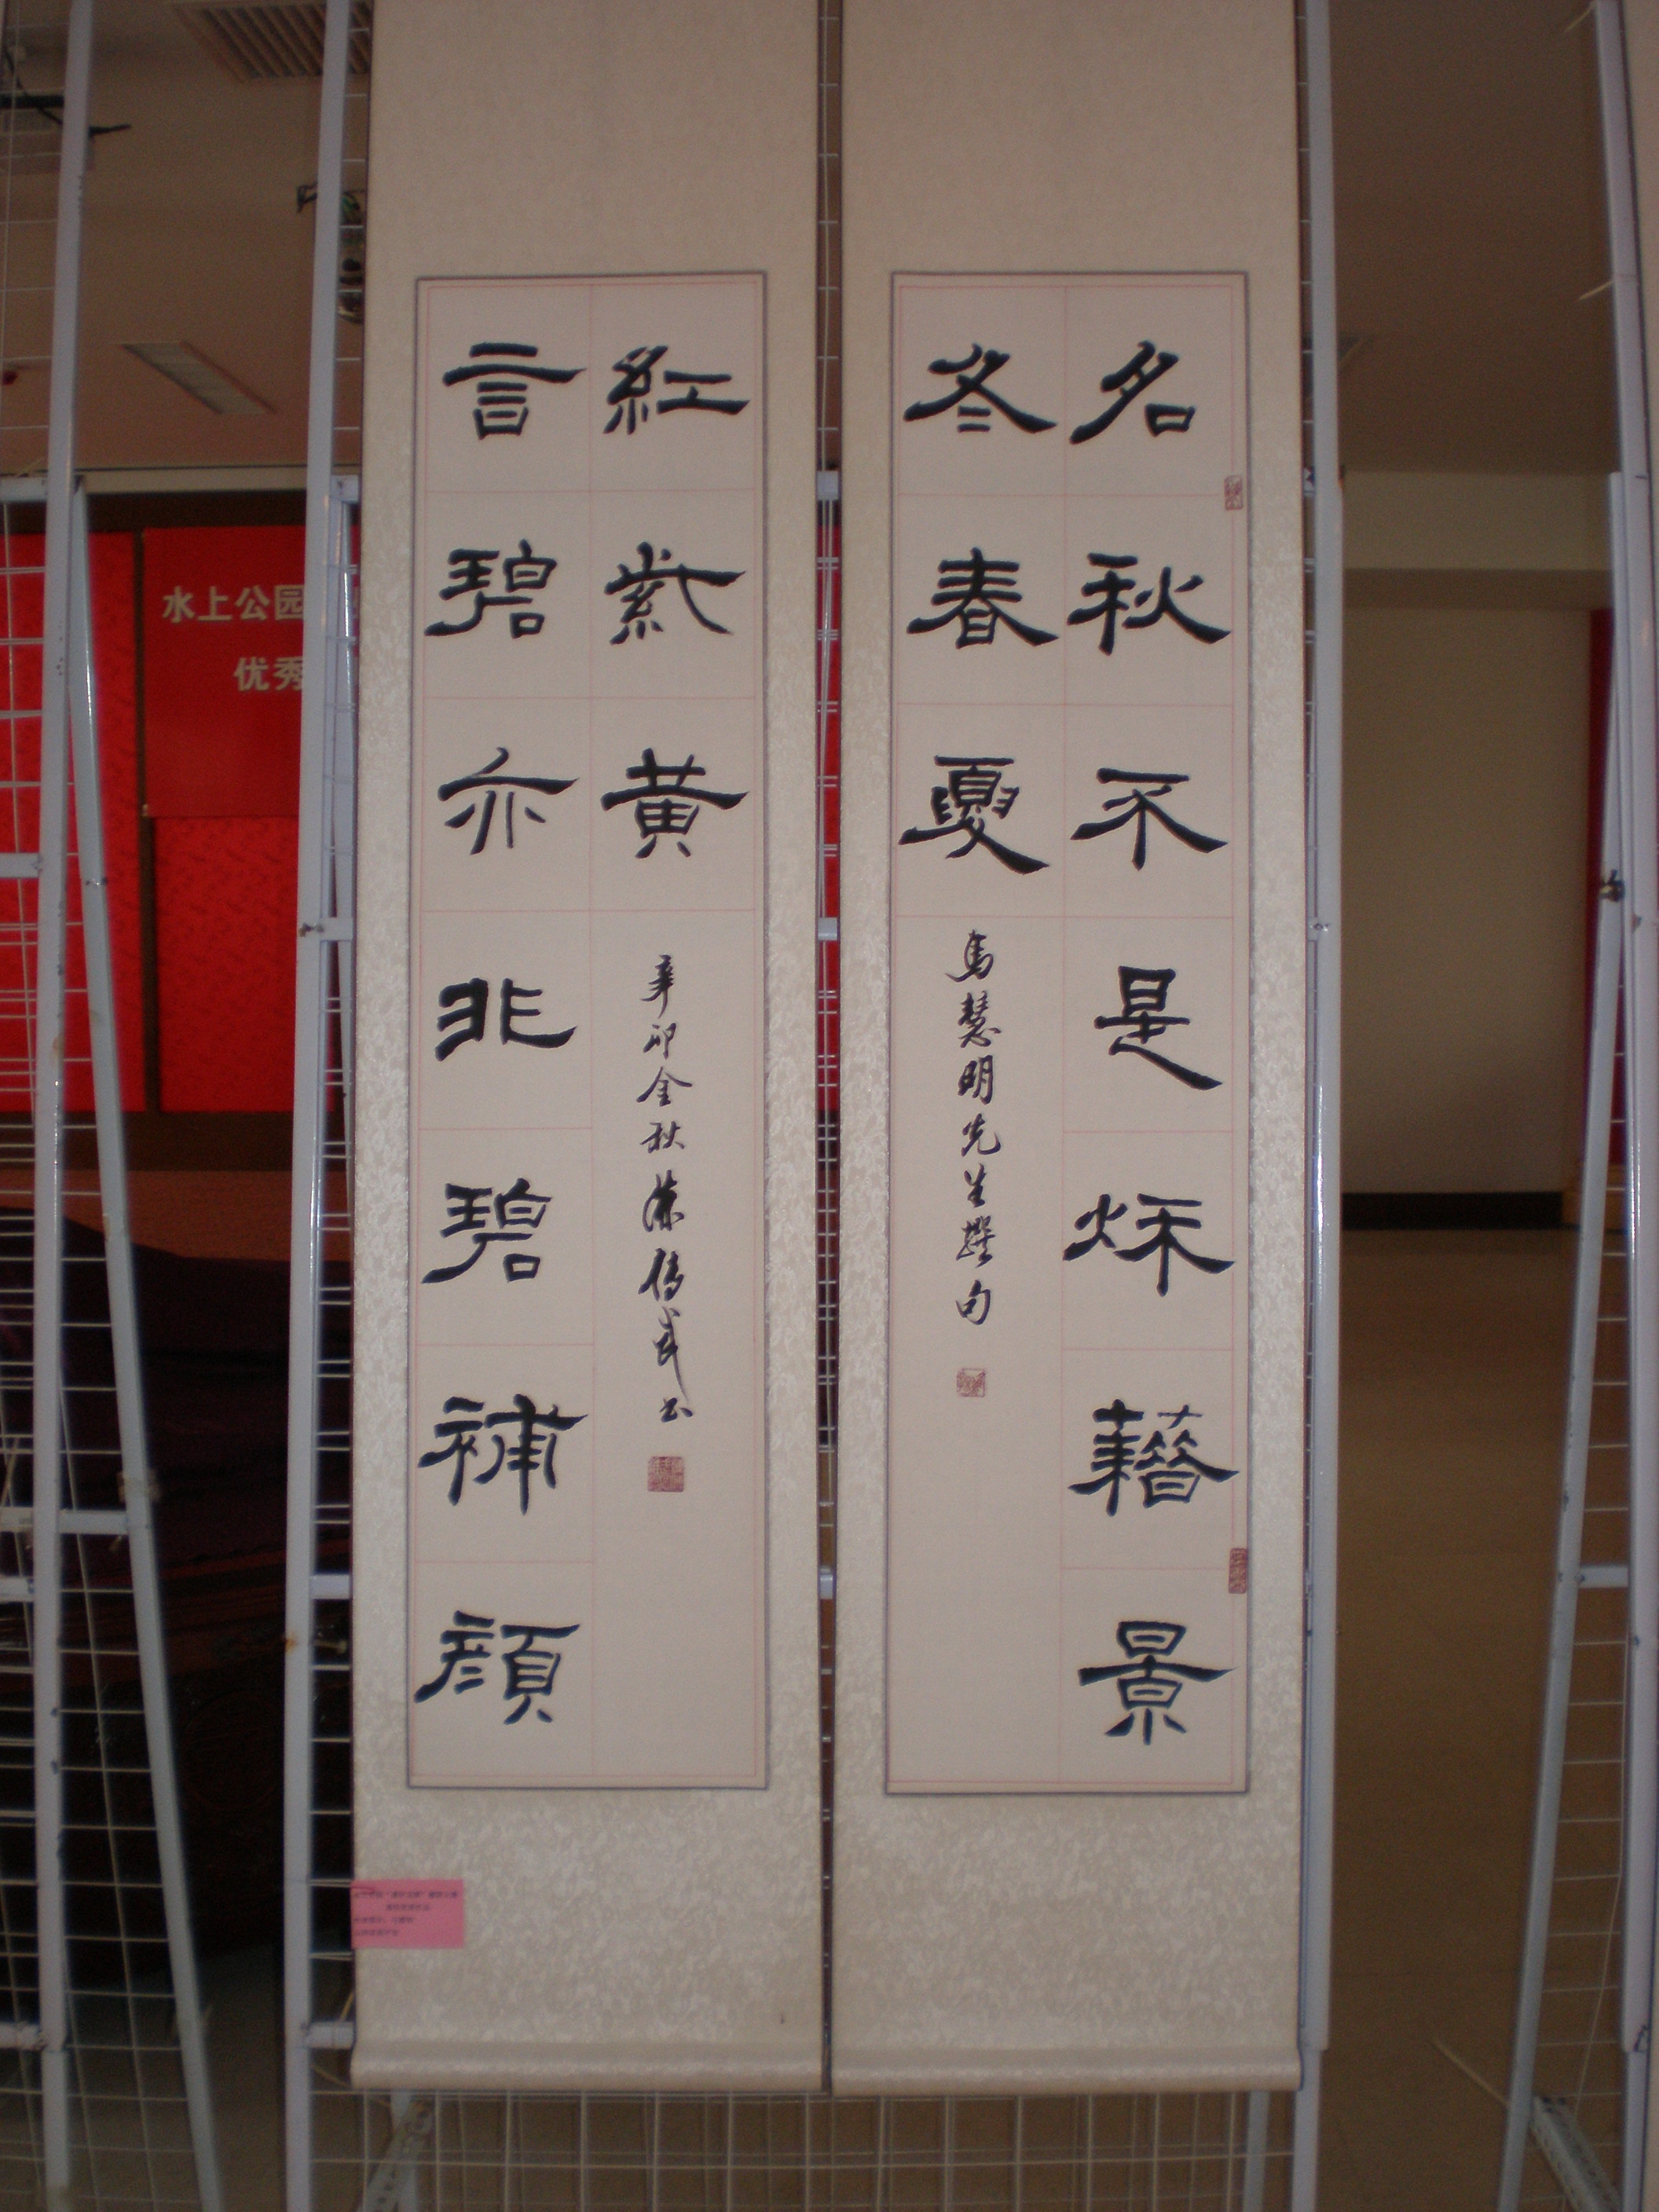 名秋不是秌藉景
冬春夏
馬慧明先生撰句
言碧亦非碧補顔
紅紫黄
辛卯金秋
書
水上公园
优秀